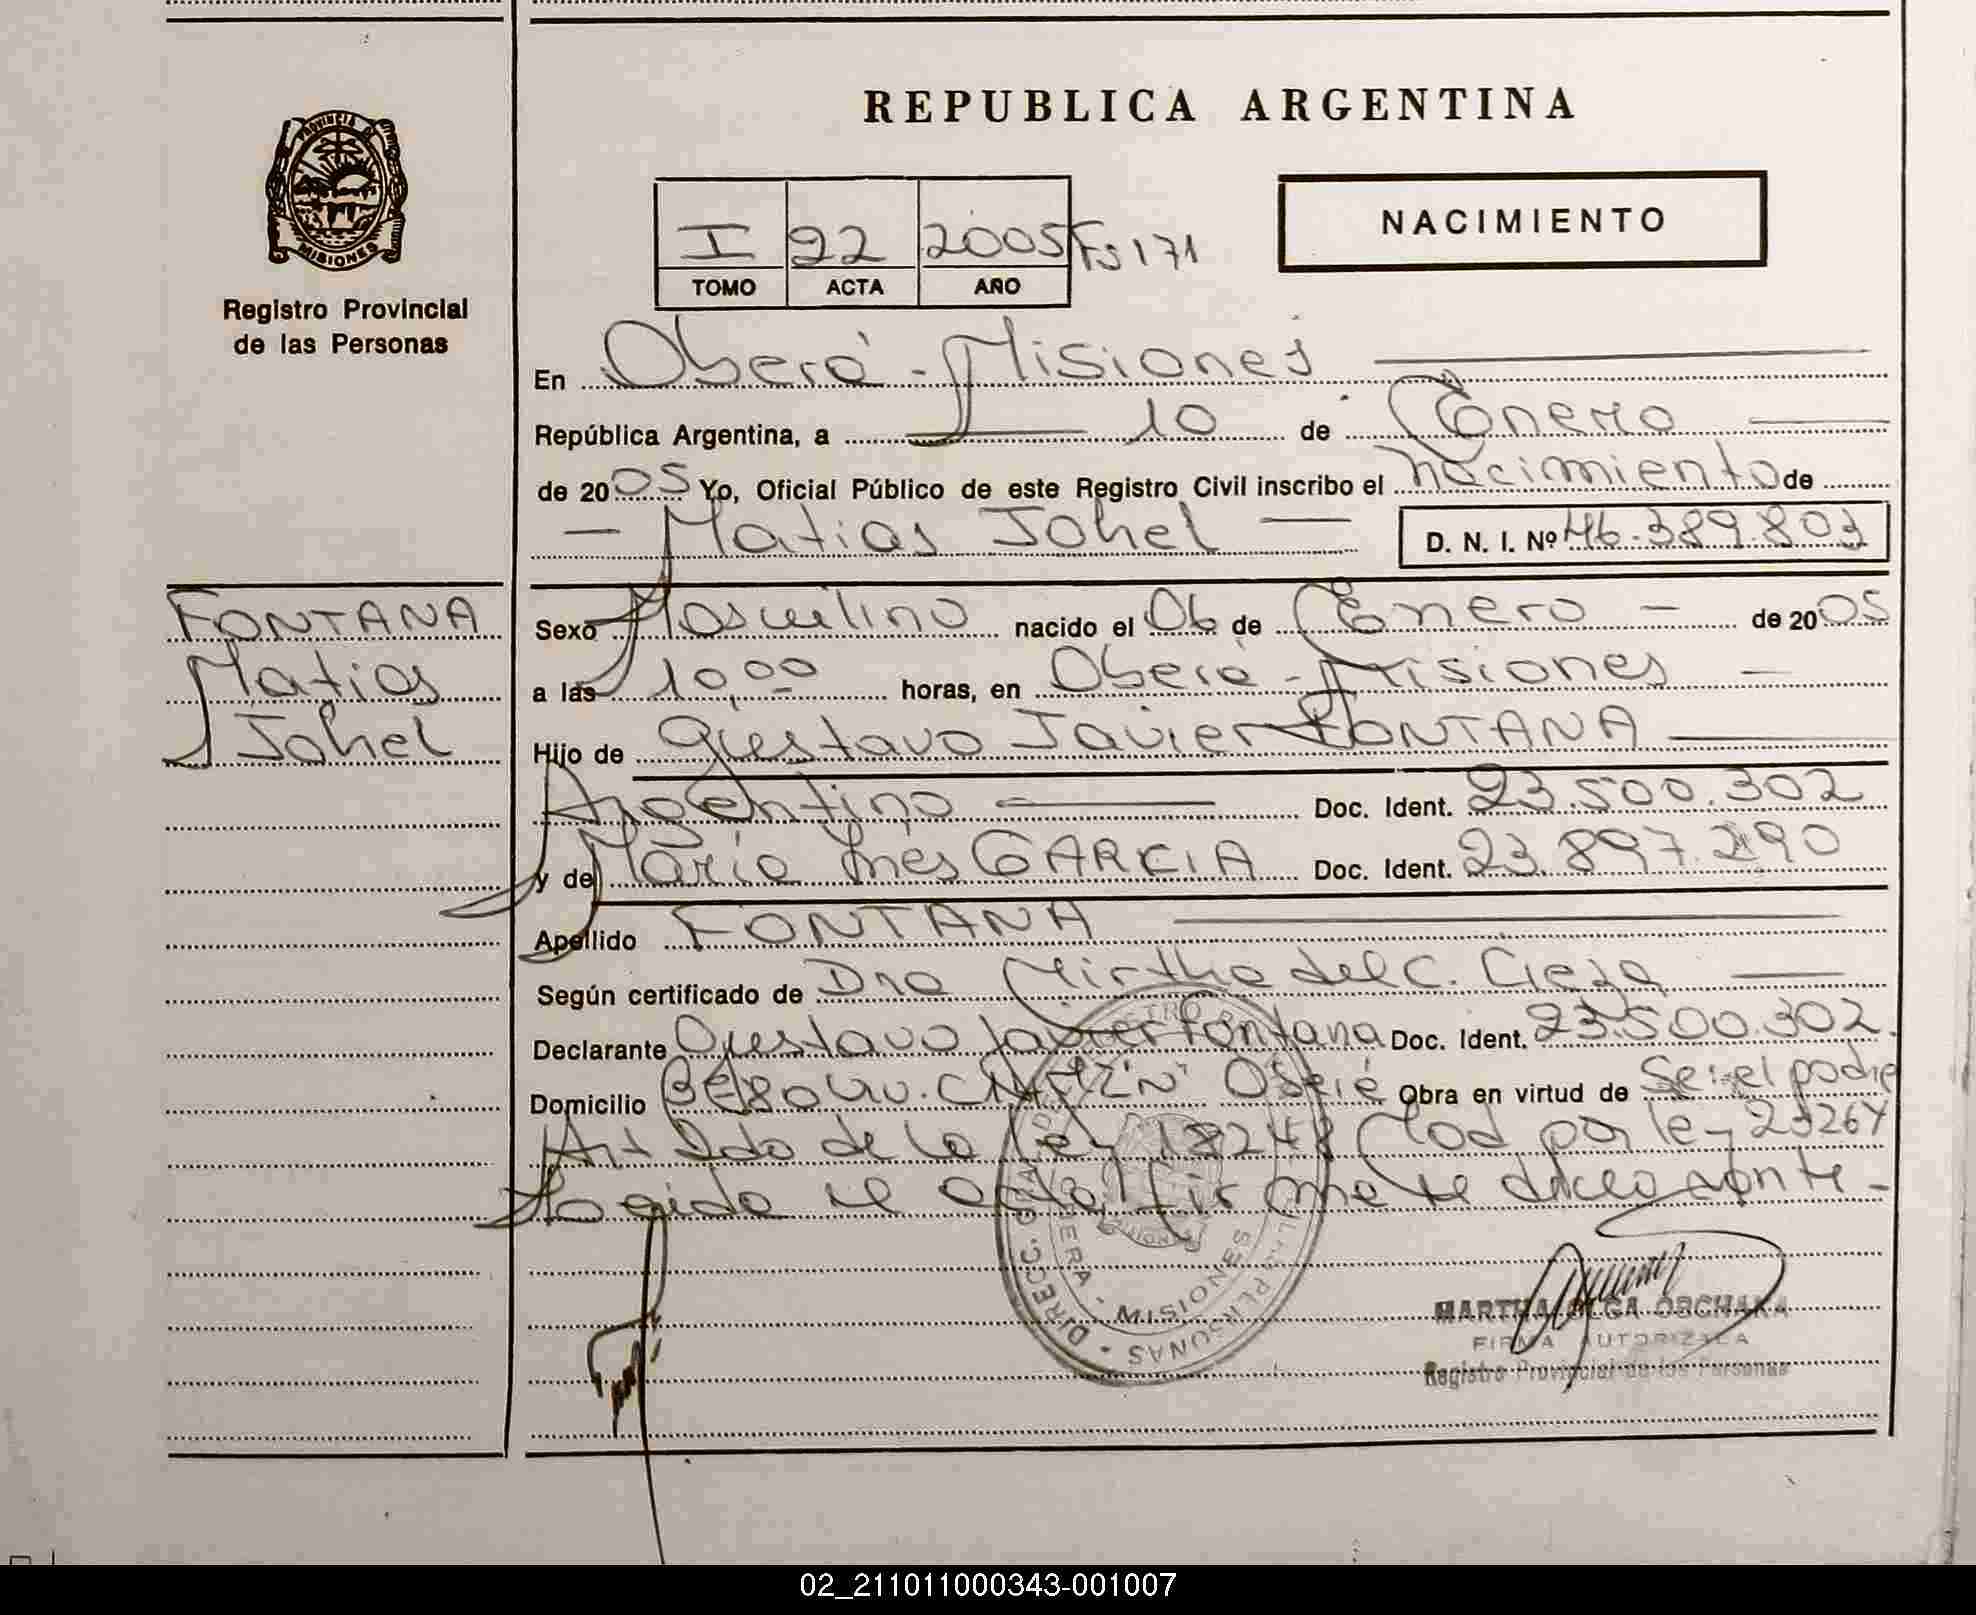 REPUBLICA ARGENTINA
PROVINCIA D
MISIONES
Registro Provincial
de las Personas
NACIMIENTO
I 22 2005 Fs 171
TOMO ACTA AÑO
En Oberá - Misiones
República Argentina, a 10 de Enero
de 2005 Yo, Oficial Público de este Registro Civil inscribo el nacimiento de
Matias Johel D. N. I. Nº 46.389.803
FONTANA
Matias
Johel
Sexo Masculino nacido el 06 de Enero de 2005
a las 10,00 horas, en Oberá - Misiones
Hijo de Gustavo Javier FONTANA
Argentino Doc. Ident. 23.500.302
y de Maria Ines GARCIA Doc. Ident. 23.897.290
Apellido FONTANA
Según certificado de Dra Mirtha del C.
Declarante Gustavo Javier Fontana Doc. Ident. 23.500.302.
Domicilio Oberá Obra en virtud de Ser el padre
Art 2do de la ley 18248 Mod por ley 23264
el acta firma el declarante -
MISIONES
DIRECC. GRAL.
PERSONAS
MARTHA OLGA
FIRMA AUTORIZADA
Registro Provincial de las Personas
02_211011000343-001007